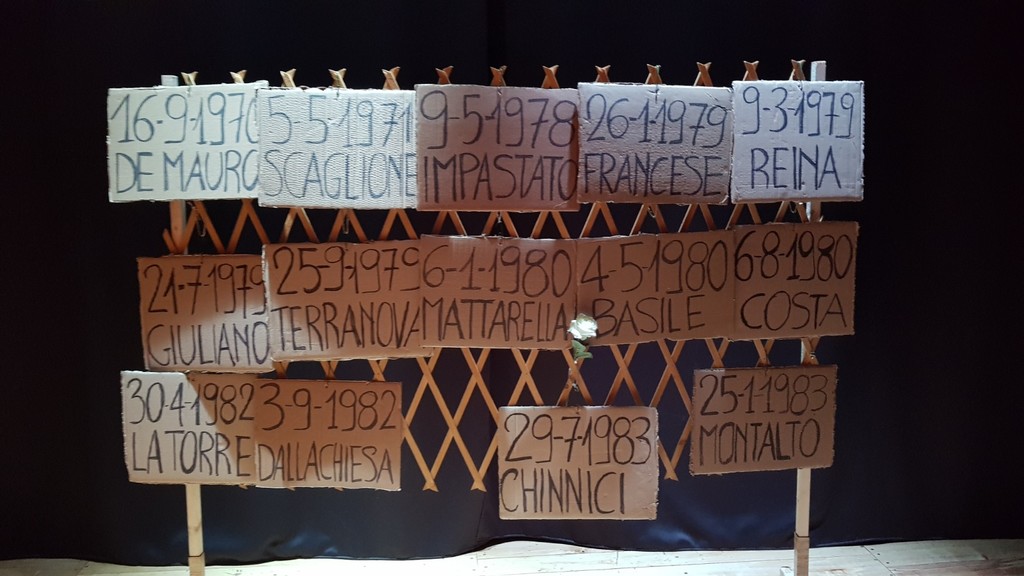 16-9-1970
DE MAURO
5-5-1971
SCAGLIONE
9-5-1978
IMPASTATO
26-1-1979
FRANCESE
9-3-1979
REINA
21-7-1979
GIULIANO
25-9-1979
TERRANOVA
6-1-1980
MATTARELLA
4-5-1980
BASILE
6-8-1980
COSTA
30-4-1982
LA TORRE
3-9-1982
DALLA CHIESA
29-7-1983
CHINNICI
25-1-1983
MONTALTO